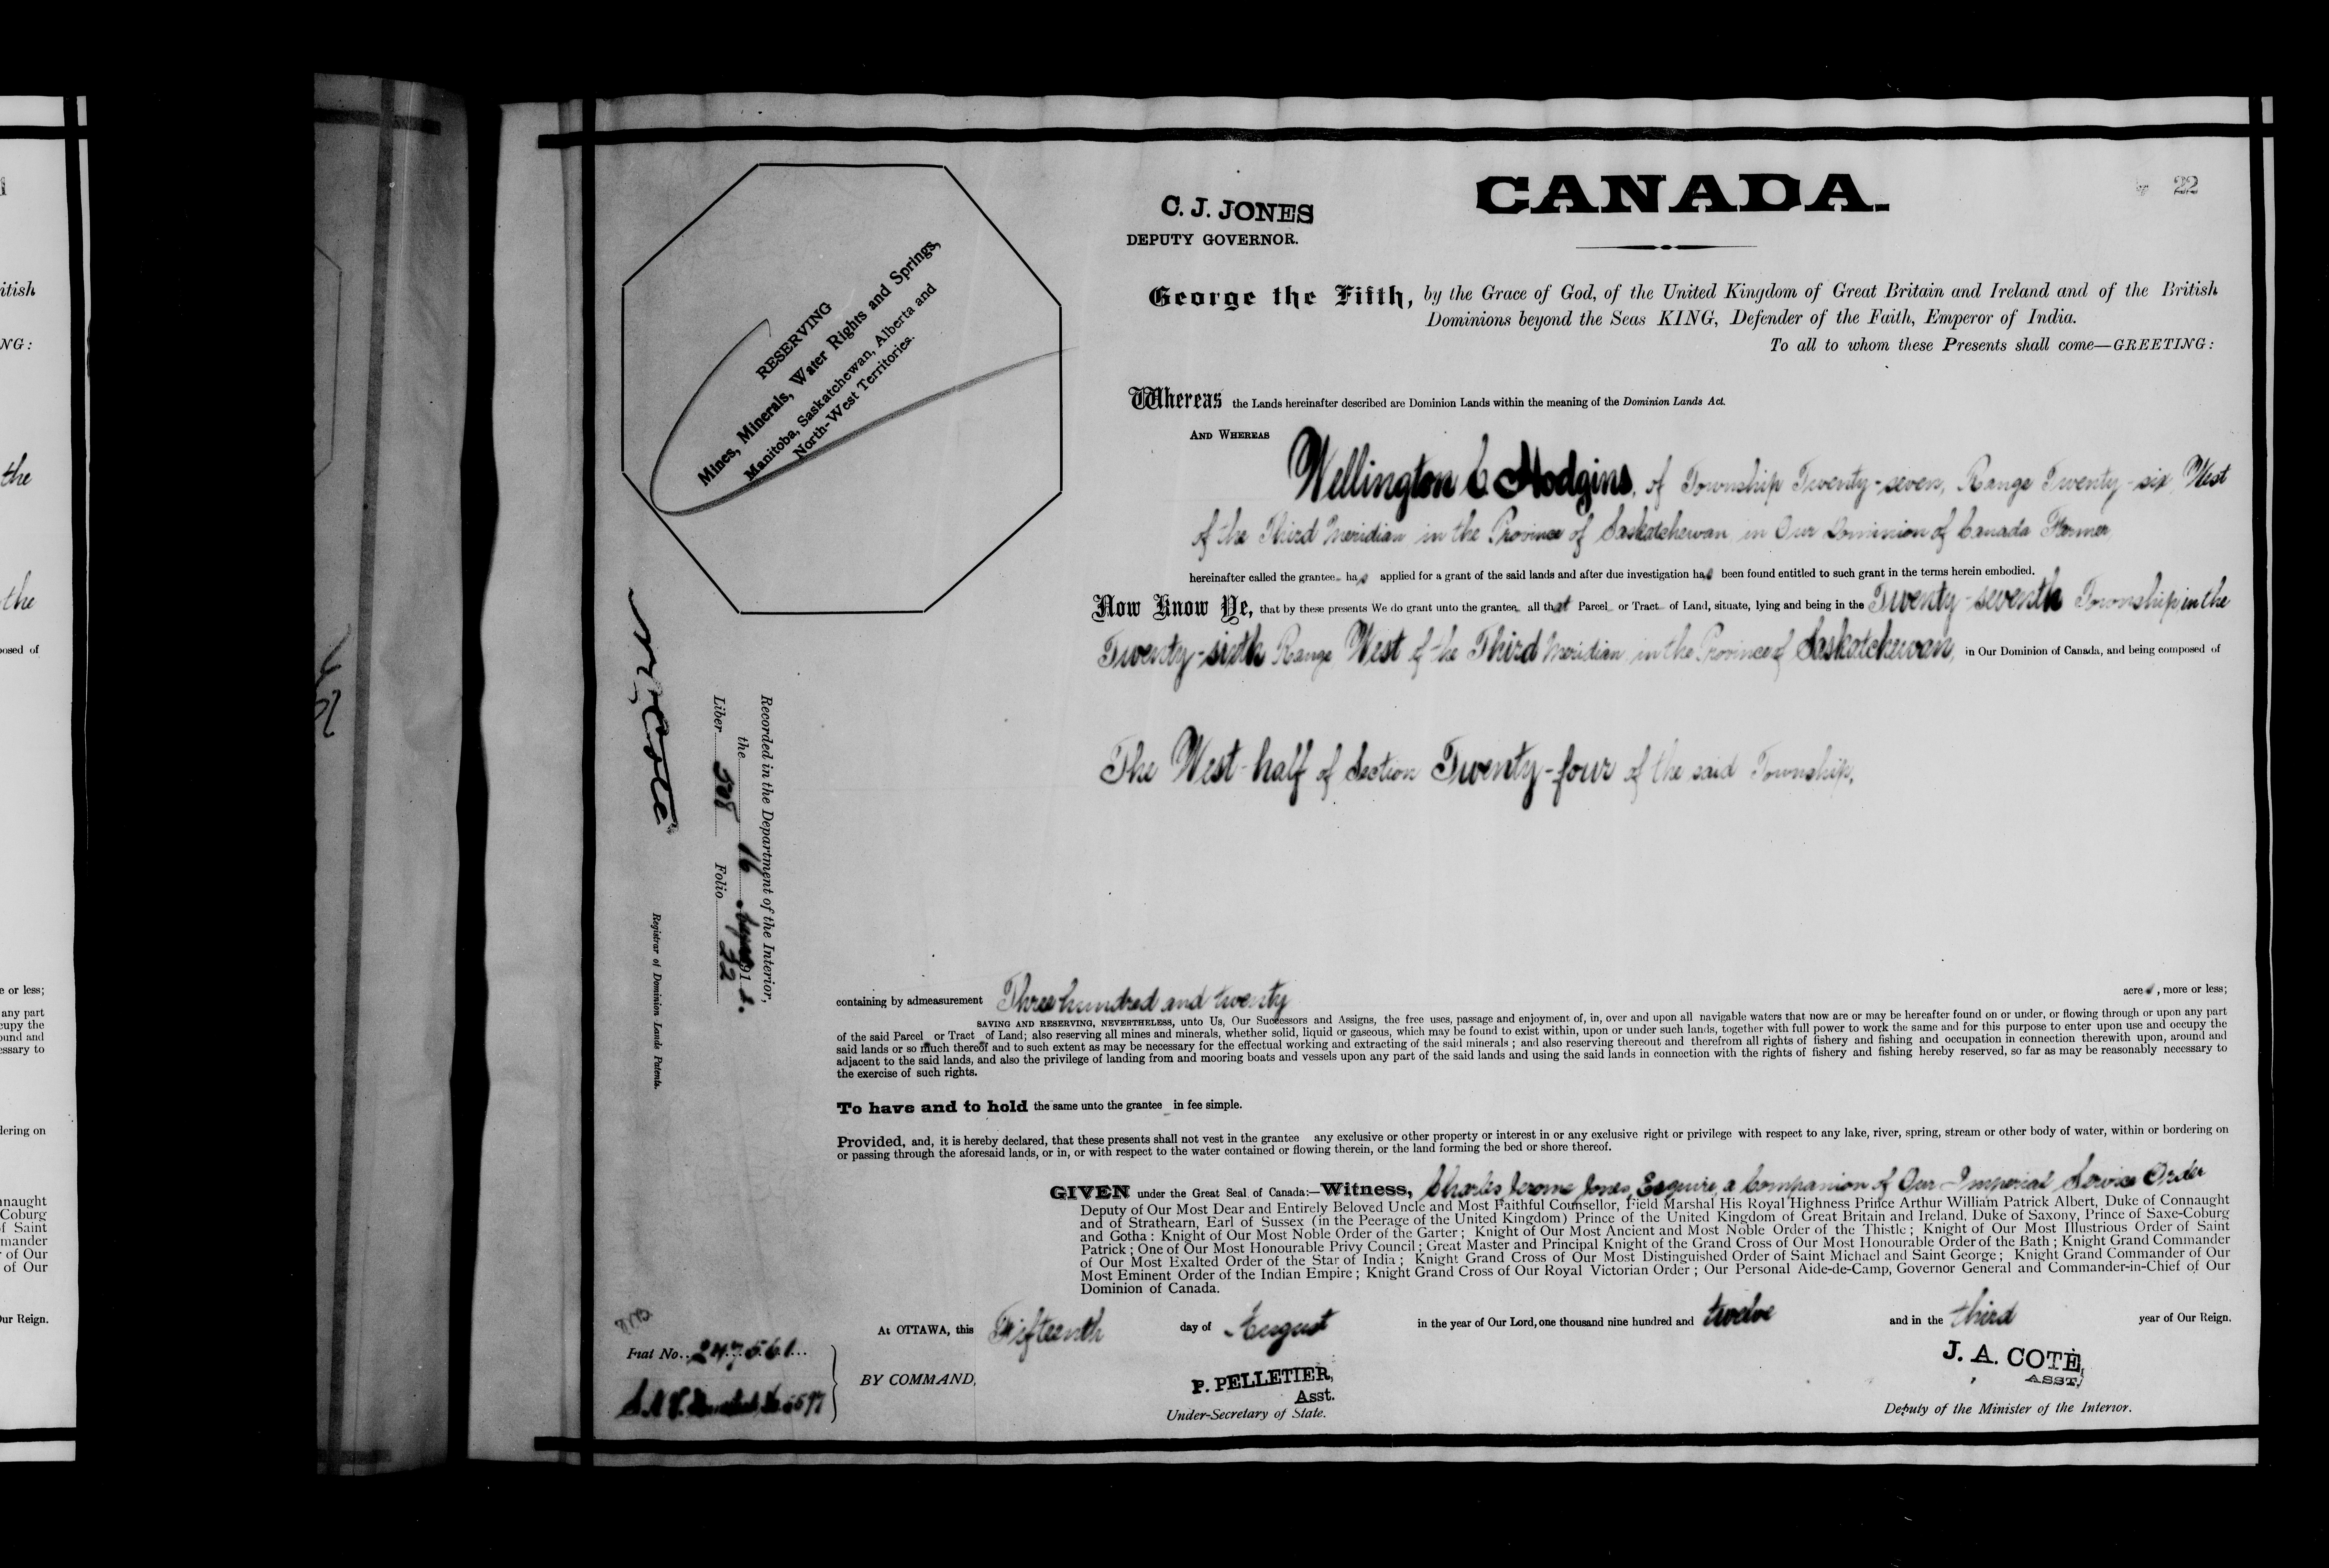 22
CANADA.
C. J. JONES
DEPUTY GOVERNOR.
George the Fifth, by the Grace of God, of the United Kingdom of Great Britain and Ireland and of the British
Dominions beyond the Seas KING, Defender of the Faith, Emperor of India.
To all to whom these Presents shall come—GREETING:
RESERVING
Mines, Minerals, Water Rights and Springs,
Manitoba, Saskatchewan, Alberta and
North-West Territories.
Whereas the Lands hereinafter described are Dominion Lands within the meaning of the Dominion Lands Act.
AND WHEREAS
Wellington C Hodgins, of Township Twenty-seven, Range Twenty-six, West
of the Third Meridian in the Province of Saskatchewan, in Our Dominion of Canada Farmer,
hereinafter called the grantee has applied for a grant of the said lands and after due investigation has been found entitled to such grant in the terms herein embodied.
Now Know Ye, that by these presents We do grant unto the grantee all that Parcel or Tract of Land, situate, lying and being in the Twenty-seventh Township in the
Twenty-sixth Range West of the Third Meridian, in the Province of Saskatchewan, in Our Dominion of Canada, and being composed of
The West-half of Section Twenty-four of the said Township,
Recorded in the Department of the Interior,
the 16 191 2.
Liber 508 Folio 22
N. Cote
Registrar of Dominion Lands Patents.
containing by admeasurement Three hundred and twenty acres, more or less;
SAVING AND RESERVING, NEVERTHELESS, unto Us, Our Successors and Assigns, the free uses, passage and enjoyment of, in, over and upon all navigable waters that now are or may be hereafter found on or under, or flowing through or upon any part
of the said Parcel or Tract of Land; also reserving all mines and minerals, whether solid, liquid or gaseous, which may be found to exist within, upon or under such lands, together with full power to work the same and for this purpose to enter upon use and occupy the
said lands or so much thereof and to such extent as may be necessary for the effectual working and extracting of the said minerals ; and also reserving thereout and therefrom all rights of fishery and fishing and occupation in connection therewith upon, around and
adjacent to the said lands, and also the privilege of landing from and mooring boats and vessels upon any part of the said lands and using the said lands in connection with the rights of fishery and fishing hereby reserved, so far as may be reasonably necessary to
the exercise of such rights.
To have and to hold the same unto the grantee in fee simple.
Provided, and, it is hereby declared, that these presents shall not vest in the grantee any exclusive or other property or interest in or any exclusive right or privilege with respect to any lake, river, spring, stream or other body of water, within or bordering on
or passing through the aforesaid lands, or in, or with respect to the water contained or flowing therein, or the land forming the bed or shore thereof.
GIVEN under the Great Seal of Canada:—Witness, Charles Jerome Jones, Esquire, a Companion of Our Imperial Service Order
Deputy of Our Most Dear and Entirely Beloved Uncle and Most Faithful Counsellor, Field Marshal His Royal Highness Prince Arthur William Patrick Albert, Duke of Connaught
and of Strathearn, Earl of Sussex (in the Peerage of the United Kingdom) Prince of the United Kingdom of Great Britain and Ireland, Duke of Saxony, Prince of Saxe-Coburg
and Gotha : Knight of Our Most Noble Order of the Garter ; Knight of Our Most Ancient and Most Noble Order of the Thistle ; Knight of Our Most Illustrious Order of Saint
Patrick ; One of Our Most Honourable Privy Council ; Great Master and Principal Knight of the Grand Cross of Our Most Honourable Order of the Bath ; Knight Grand Commander
of Our Most Exalted Order of the Star of India ; Knight Grand Cross of Our Most Distinguished Order of Saint Michael and Saint George ; Knight Grand Commander of Our
Most Eminent Order of the Indian Empire ; Knight Grand Cross of Our Royal Victorian Order ; Our Personal Aide-de-Camp, Governor General and Commander-in-Chief of Our
Dominion of Canada.
At OTTAWA, this Fifteenth day of August in the year of Our Lord, one thousand nine hundred and twelve and in the third year of Our Reign.
Fiat No. 247561
BY COMMAND,
P. PELLETIER,
Asst.
Under-Secretary of State.
J. A. COTE,
ASST.
Deputy of the Minister of the Interior.
itish
NG:
the
the
posed of
e or less;
any part
cupy the
ound and
essary to
dering on
nnaught
Coburg
f Saint
mander
of Our
of Our
Our Reign.